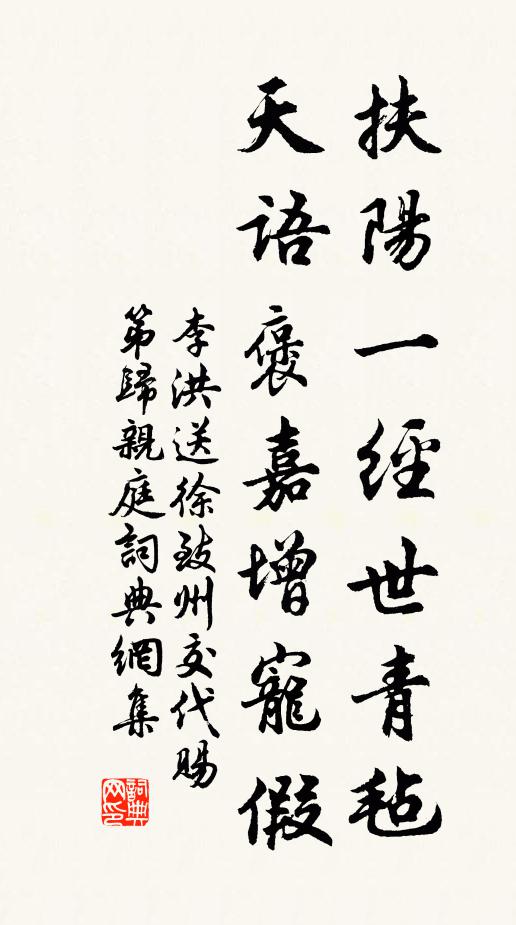 扶陽一經世青毡
天語褒嘉增寵假
李洪送徐致州交代賜
第歸親庭詞典網集
詞典
网印